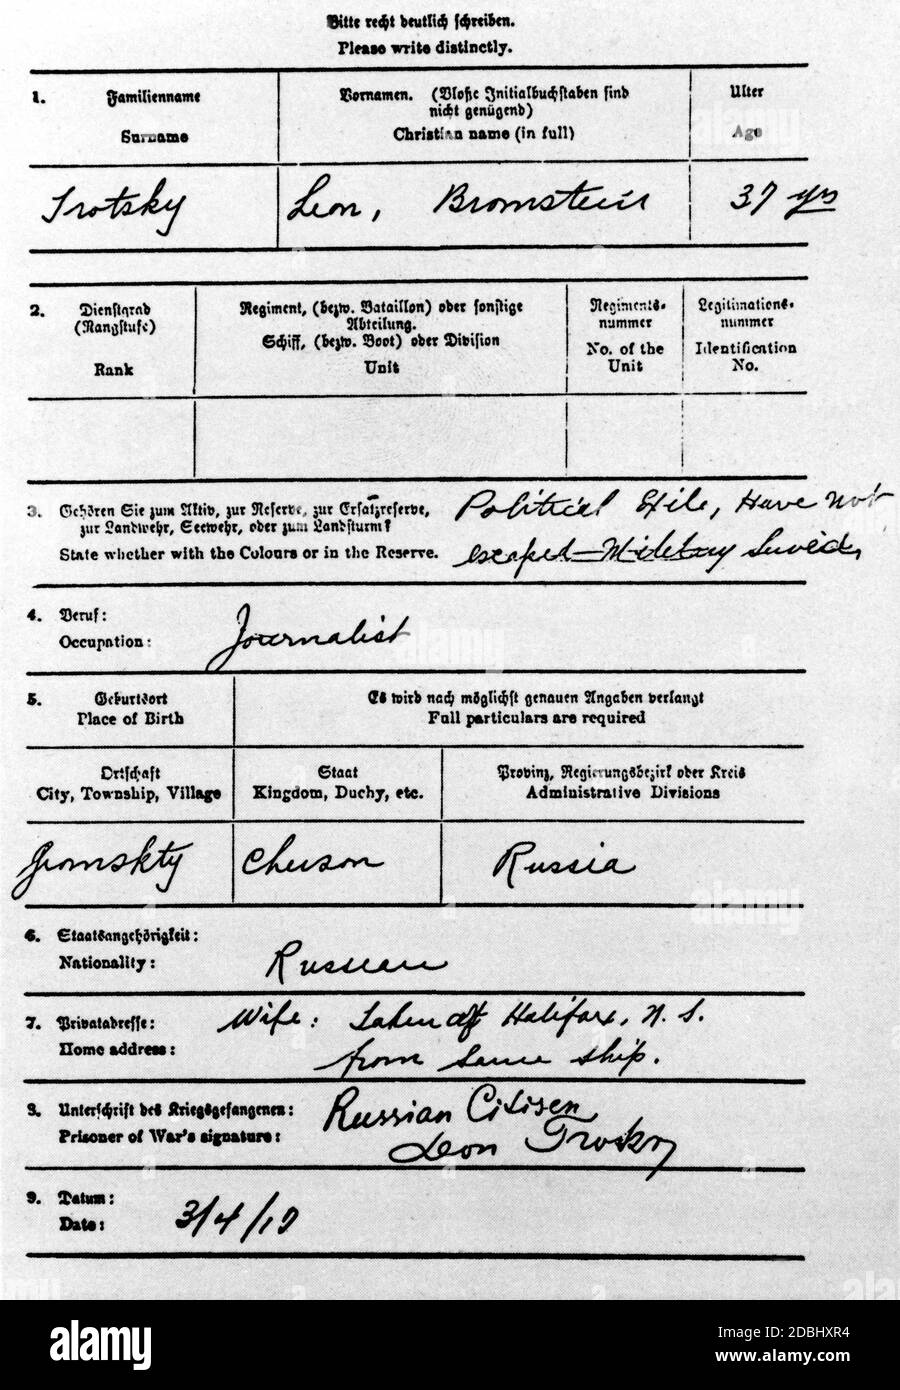 Bitte recht deutlich schreiben.
Please write distinctly.
1. Familienname
Surname
Vornamen. (Bloße Initialbuchstaben sind
nicht genügend)
Christian name (in full)
Alter
Age
Trotsky
Leon, Bromstein
37 yrs
2. Dienstgrad
(Rangstufe)
Rank
Regiment, (bezw. Bataillon) oder sonstige
Abteilung.
Schiff, (bezw. Boot) oder Division
Unit
Regiments-
nummer
No. of the
Unit
Legitimations-
nummer
Identification
No.
3. Gehören Sie zum Aktiv, zur Reserve, zur Ersatzreserve,
zur Landwehr, Seewehr, oder zum Landsturm?
State whether with the Colours or in the Reserve.
Political Exile, Have not
escaped Military
4. Beruf:
Occupation:
Journalist
5. Geburtsort
Place of Birth
Es wird nach möglichst genauen Angaben verlangt
Full particulars are required
Ortschaft
City, Township, Village
Staat
Kingdom, Duchy, etc.
Provinz, Regierungsbezirk oder Kreis
Administrative Divisions
Gromskty
Cherson
Russia
6. Staatsangehörigkeit:
Nationality:
Russian
7. Privatadresse:
Home address:
Wife: Taken off Halifax, N.S.
from same ship.
8. Unterschrift des Kriegsgefangenen:
Prisoner of War's signature:
Russian Citisen
Leon Trotsky
9. Datum:
Date:
3/4/17
alamy
Image ID: 2DBHXR4
www.alamy.com